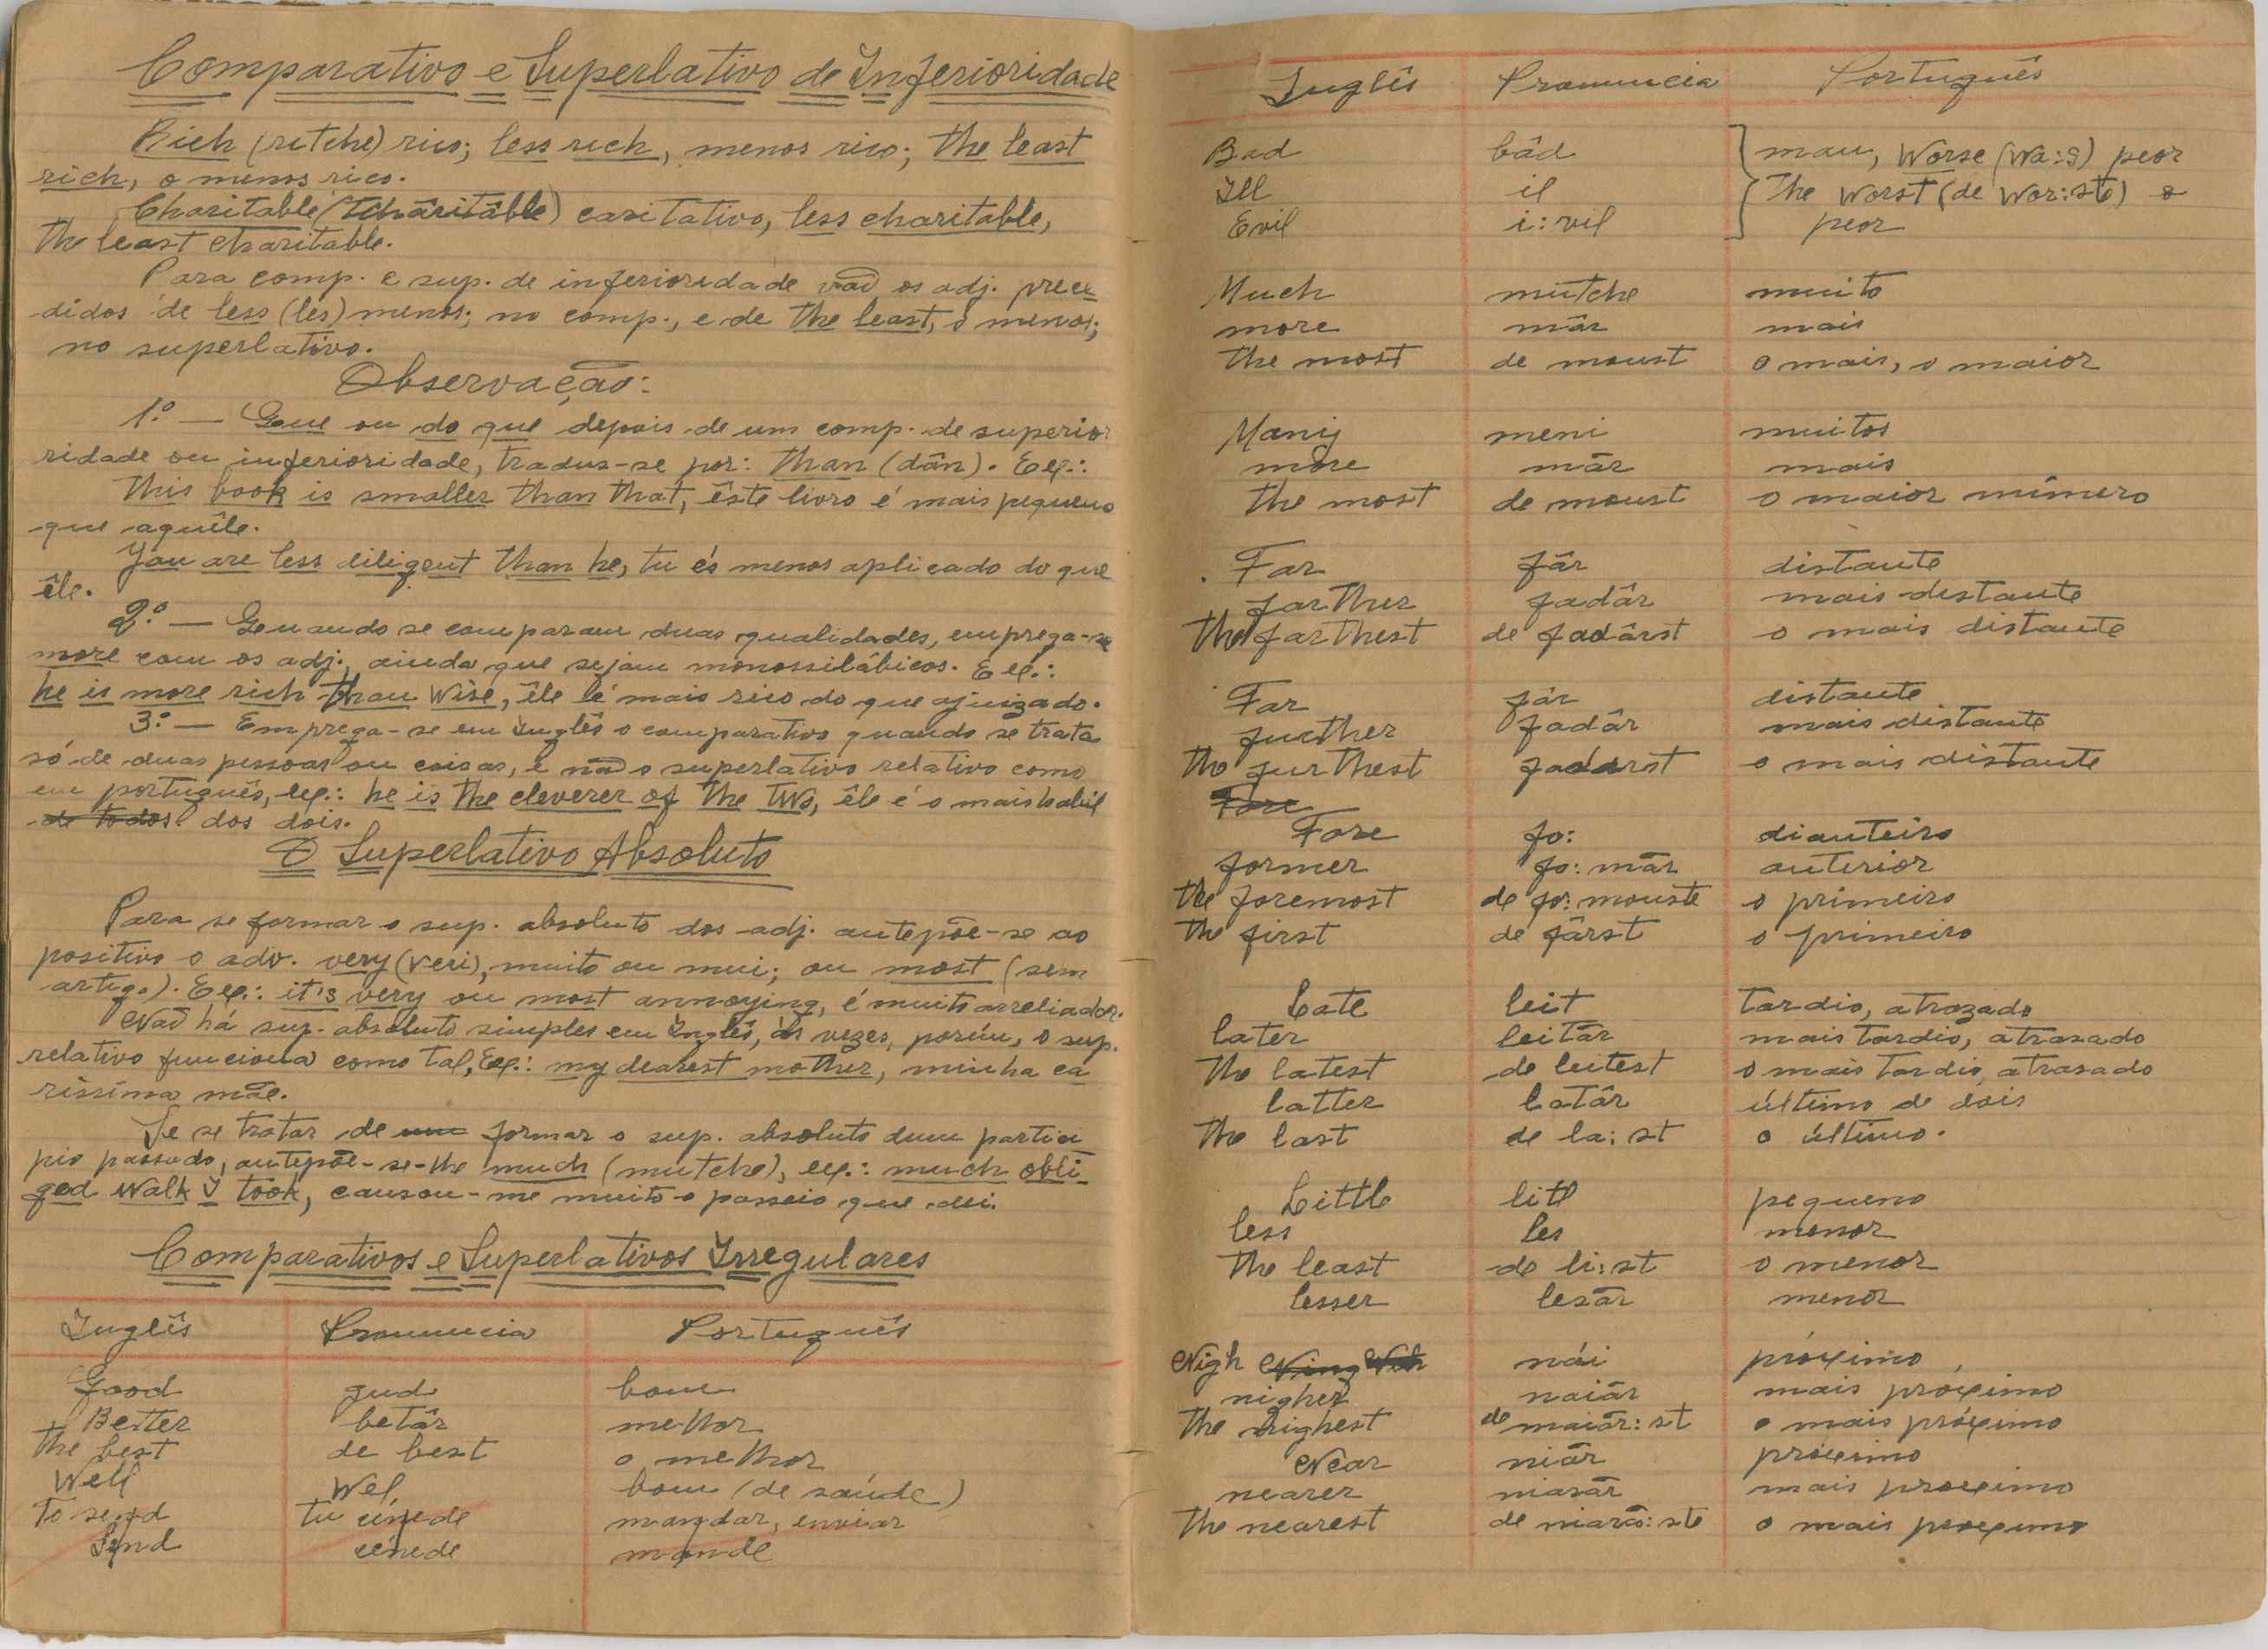 Comparativo e Superlativo de Inferioridade
Rich (ritche) rico; less rich, menos rico; the least
rich, o menos rico.
Charitable (tchâritâble) caritativo, less charitable,
the least charitable.
Para comp. e sup. de inferioridade vão os adj. prece
didos de less (lés) menos; no comp., e de the least, o menos;
no superlativo.
Observação:
1.º — Que ou do que depois de um comp. de superior
ridade ou inferioridade, tradus-se por: than (dân). Ex.:
This book is smaller than that, êste livro é mais pequeno
que aquêle.
You are less diligent than he, tu és menos aplicado do que
êle.
2.º — Quando se comparam duas qualidades, emprega-se
more com os adj., ainda que sejam monossilábicos. Ex.:
he is more rich than wise, êle é mais rico do que ajuizado.
3.º — Emprega-se em Inglês o comparativo quando se trata
só de duas pessoas ou coisas, e não o superlativo relativo como
em português, ex.: he is the cleverer of the two, êle é o mais habil
de todos dos dois.
O Superlativo Absoluto
Para se formar o sup. absoluto dos adj. antepõe-se ao
positivo o adv. very (veri), muito ou mui; ou most (sem
artigo). Ex.: it's very ou most annoying, é muito arreliador.
Não há sup. absoluto simples em Inglês, ás vezes, porém, o sup.
relativo funciona como tal, Ex.: my dearest mother, minha ca
rissíma mãe.
Se se tratar de um formar o sup. absoluto dum partici
pio passado, antepõe-se-lhe much (mutche), ex.: much obli-
ged walk I took, causou-me muito o passeio que dei.
Comparativos e Superlativos Irregulares
Inglês Pronuncia Português
Good gud bom
Better betâr melhor
the best de best o melhor
Well Wel bom (de saúde)
To send tu cénede mandar, enviar
Send cénede mande
Inglês Pronuncia Português
Bad bâd mau, Worse (Wa:s) peor
Ill il the Worst (de Wor:ste) o
Evil i:vil peor
Much mutche muito
more mâr mais
the most de moust o mais, o maior
Many meni muitos
more mâr mais
the most de moust o maior número
Far fâr distante
farther fadâr mais distante
the farthest de fadârst o mais distante
Far fár distante
further fadâr mais distante
the furthest fadârst o mais distante
Fore
Fore fo: dianteiro
former fo: mâr anterior
the foremost de fo: mouste o primeiro
the first de fârst o primeiro
Late leit tardio, atrazado
later leitâr mais tardio, atrasado
the latest de leitest o mais tardio, atrasado
latter latâr último de dois
the last de la:st o último.
Little litl pequeno
less les menor
the least de li:st o menor
lesser lesâr menor
Nigh nái próximo
nigher naiâr mais próximo
the nighest de naiâr:st o mais próximo
Near niâr próximo
nearer niarâr mais proximo
the nearest de niarâ:ste o mais proximo